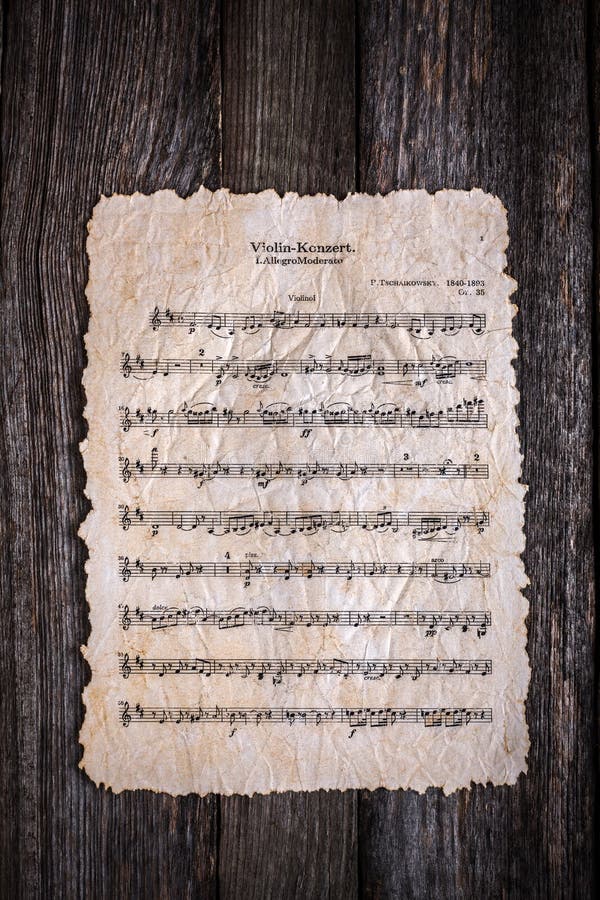 1
Violin-Konzert.
I.AllegroModerato
P.TSCHAIKOWSKY. 1840-1893
Op. 35
ViolinoI
p
2
p cresc. mf cresc.
f ff
3 2
f mf p
4 pizz. arco
p
dolce
pp
cresc.
f f f